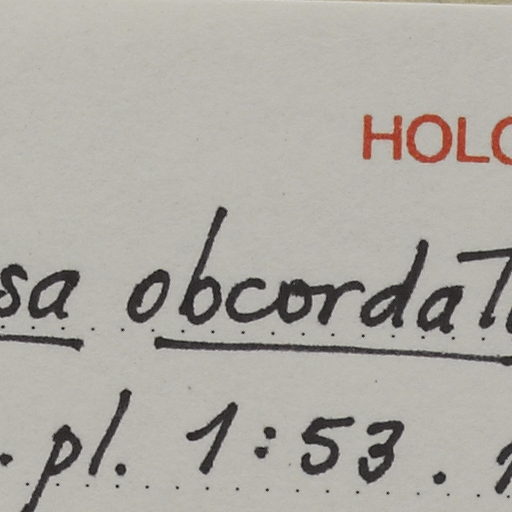 HOLO
sa obcordat
. pl. 1:53. 1